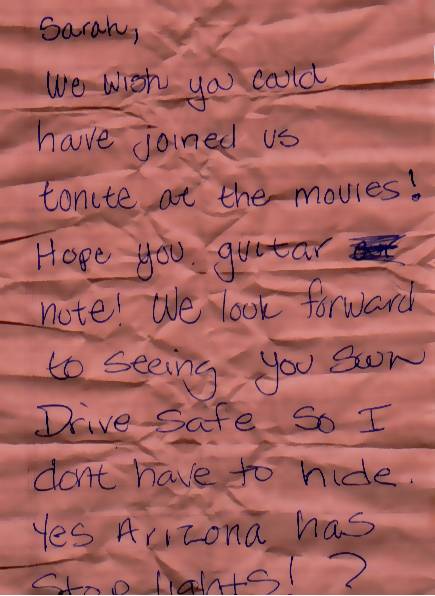 Sarah,
We wish you could
have joined us
tonite at the movies!
Hope you guitar
note! We look forward
to seeing you soon
Drive safe so I
dont have to hide.
Yes Arizona has
Stop lights! ?